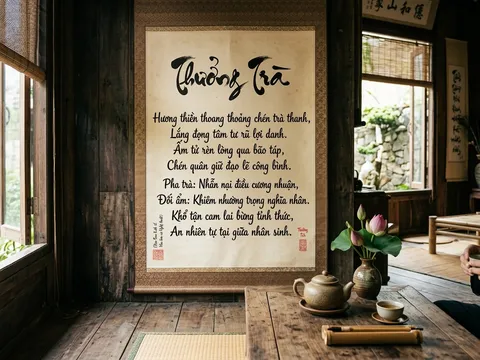 Thưởng Trà
Hương thiền thoang thoảng chén trà thanh,
Lắng đọng tâm tư rũ lợi danh.
Ấm tử rèn lòng qua bão táp,
Chén quân giữ đạo lẽ công bình.
Pha trà: Nhẫn nại điều cương nhuận,
Đối ẩm: Khiêm nhường trọng nghĩa nhân.
Khổ tận cam lai bừng tỉnh thức,
An nhiên tự tại giữa nhân sinh.